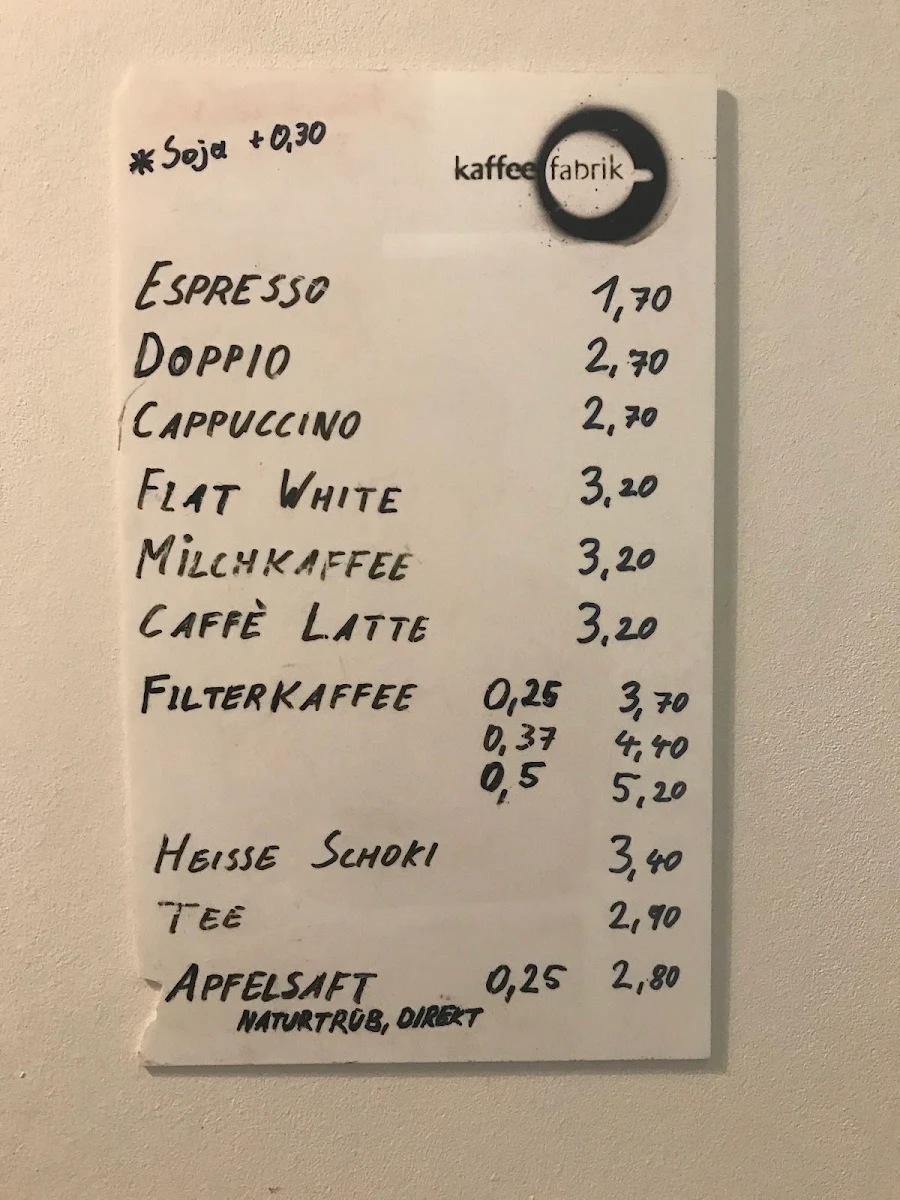 * Soja +0,30
kaffee fabrik
ESPRESSO 1,70
DOPPIO 2,70
CAPPUCCINO 2,70
FLAT WHITE 3,20
MILCHKAFFEE 3,20
CAFFÈ LATTE 3,20
FILTERKAFFEE 0,25 3,70
0,37 4,40
0,5 5,20
HEISSE SCHOKI 3,40
TEE 2,90
APFELSAFT 0,25 2,80
NATURTRÜB, DIREKT